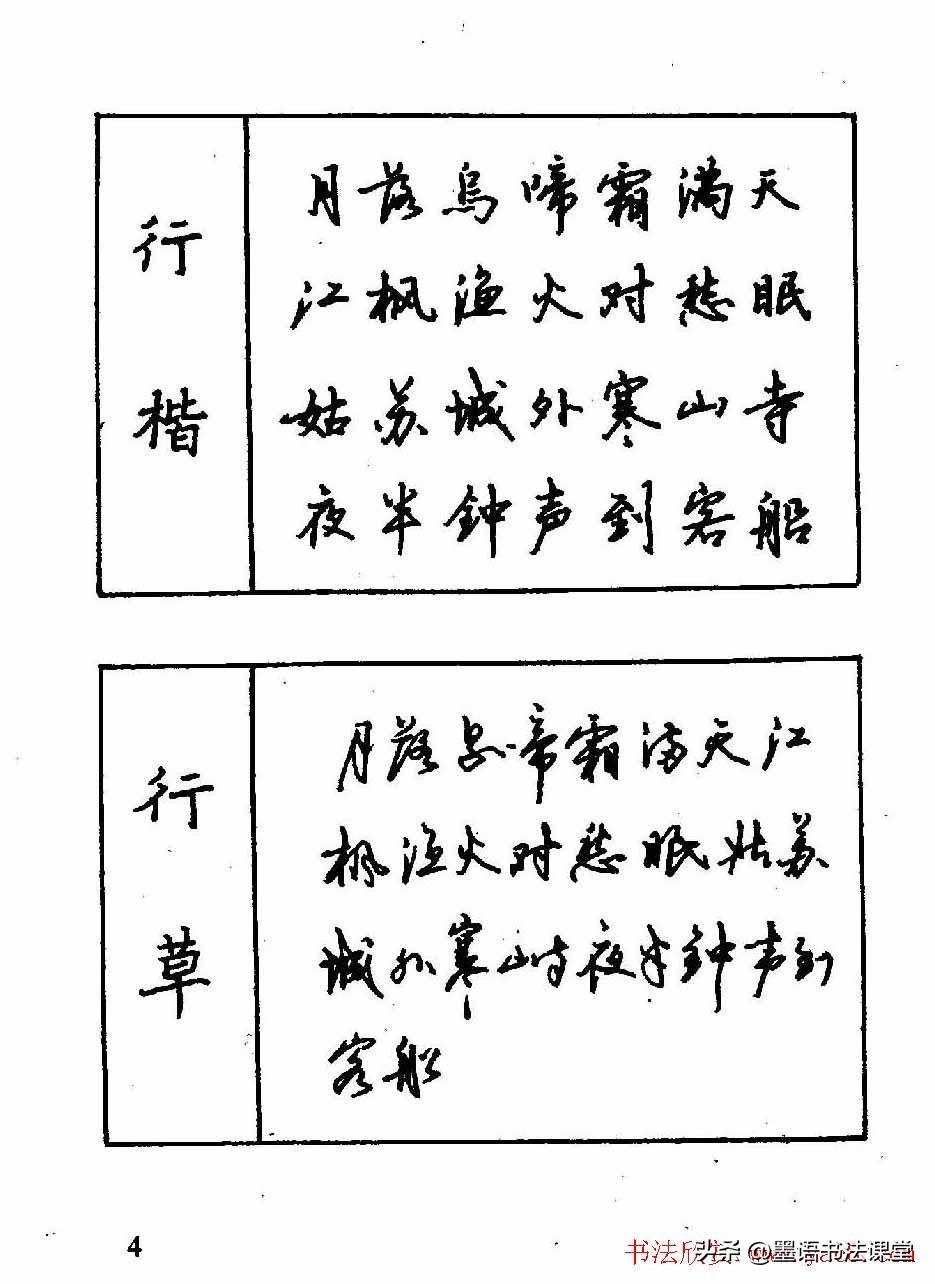 行楷
月落乌啼霜满天
江枫渔火对愁眠
姑苏城外寒山寺
夜半钟声到客船
行草
月落乌啼霜满天江
枫渔火对愁眠姑苏
城外寒山寺夜半钟声到
客船
4
书法欣赏
头条 @墨语书法课堂